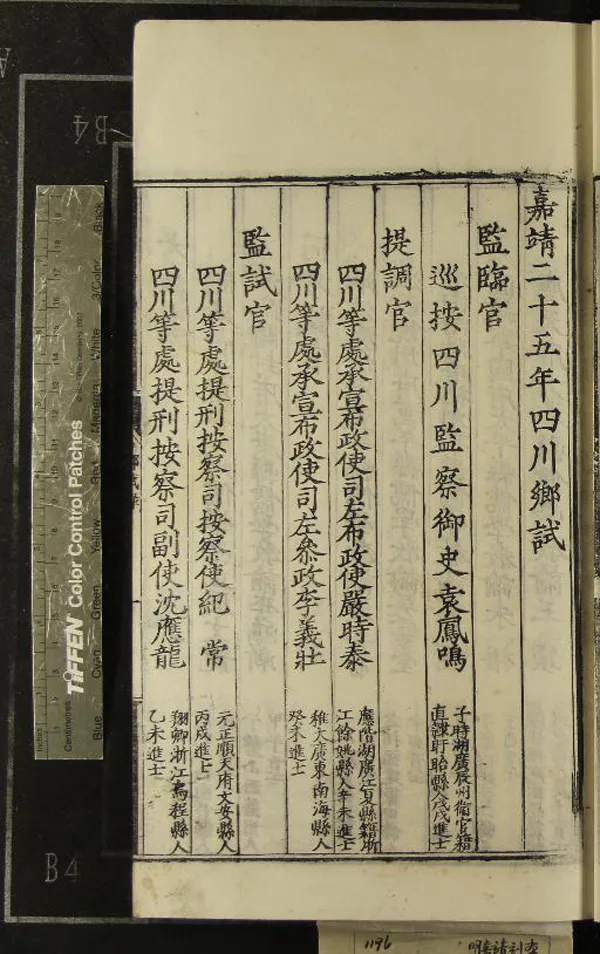 嘉靖二十五年四川鄉試
監臨官
巡按四川監察御史袁鳳鳴
子時湖廣辰州衛官籍
直隷盱眙縣人戊戌進士
提調官
四川等處承宣布政使司左布政使嚴時泰
應階湖廣江夏縣籍浙
江餘姚縣人辛未進士
四川等處承宣布政使司左叅政李義壯
稚大廣東南海縣人
癸未進士
監試官
四川等處提刑按察司按察使紀常
元正順天府文安縣人
丙戌進士
四川等處提刑按察司副使沈應龍
翔卿浙江烏程縣人
乙未進士
B4
B4
TIFFEN Color Control Patches
Centimetres
Inches
Blue
Cyan
Green
Yellow
Red
Magenta
White
3/Color
Black
1196